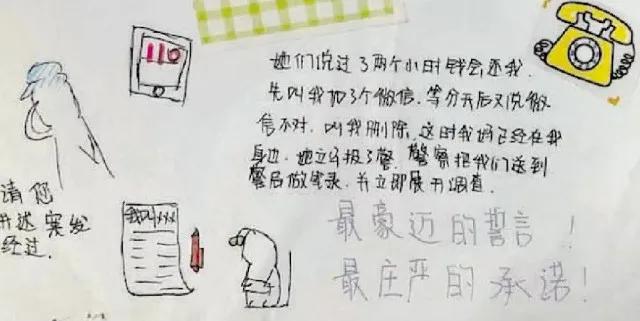 110
她们说过了两个小时钱会还我.
先叫我加3个微信.等分开后又说微
信不对,叫我删除.这时我妈已经在我
身边,她立马报了警.警察把我们送到
警局做笔录,并立即展开调查.
请您
述案发
经过.
我叫xxx
最豪迈的誓言!
最庄严的承诺!